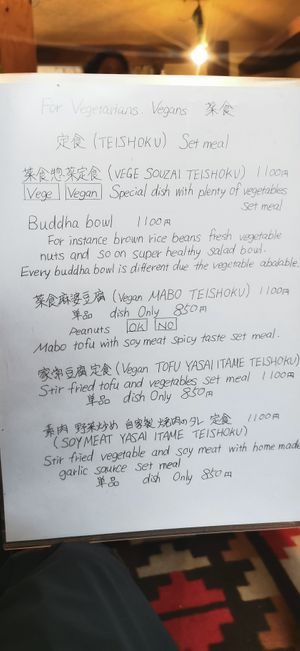 For Vegetarians. Vegans 菜食
定食 (TEISHOKU) Set meal
菜食惣菜定食 (VEGE SOUZAI TEISHOKU) 1100円
Vege Vegan Special dish with plenty of vegetables
Set meal
Buddha bowl 1100円
For instance brown rice beans fresh vegetable
nuts and so on super healthy salad bowl.
Every buddha bowl is different due the vegetable abalable.
菜食麻婆豆腐 (Vegan MABO TEISHOKU) 1100円
単品 dish Only 850円
Peanuts OK NO
Mabo tofu with soy meat spicy taste set meal.
家常豆腐定食 (Vegan TOFU YASAI ITAME TEISHOKU)
Stir fried tofu and vegetables set meal 1100円
単品 dish Only 850円
素肉 野菜炒め 自家製 焼肉のタレ 定食 1100円
(SOYMEAT YASAI ITAME TEISHOKU)
Stir fried vegetable and soy meat with home made
garlic source set meal
単品 dish Only 850円